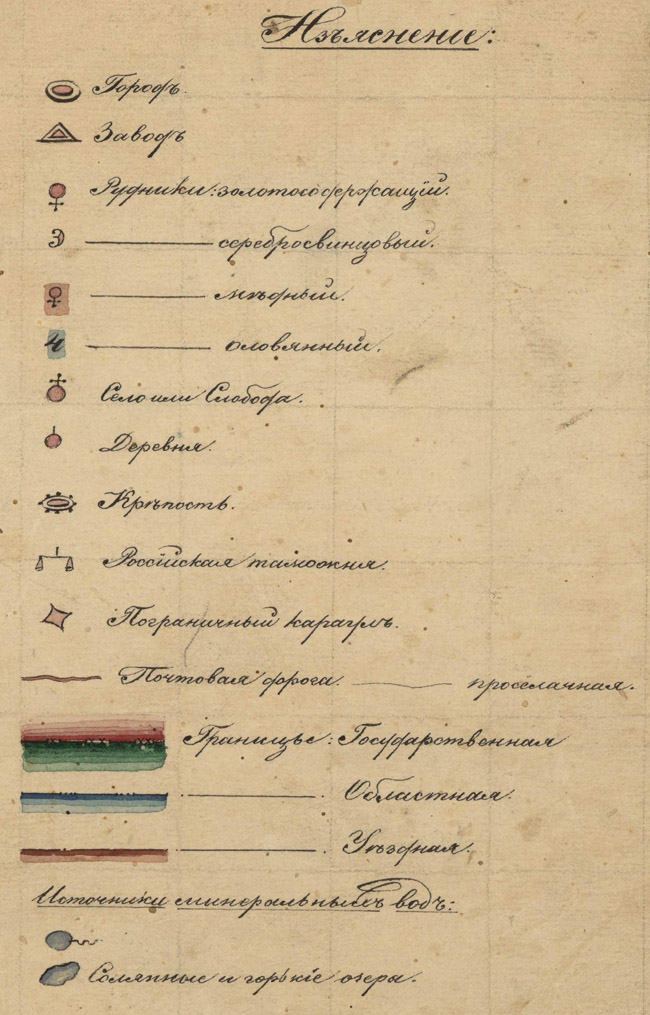 Изъясненiе:
Городъ.
Заводъ
Рудники: золотосодержащiй.
——— серебросвинцовый.
——— мѣдный.
——— оловянный.
Село или Слобода.
Деревня.
Крѣпость.
Россiйская таможня.
Пограничный караулъ.
Почтовая дорога. ——— проселачная.
Границы: Государственная
———. Областная.
———. Уѣздная.
Источники минеральныхъ водъ:
Солянные и горькiе озера.